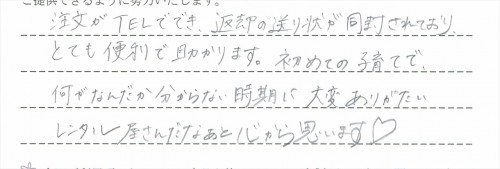 ご提供できるように努力いたします。
注文がTELででき、返却の送り状が同封されており、
とても便利で助かります。初めての子育てで、
何がなんだか分からない時期に大変ありがたい
レンタル屋さんだなぁと心から思います♡